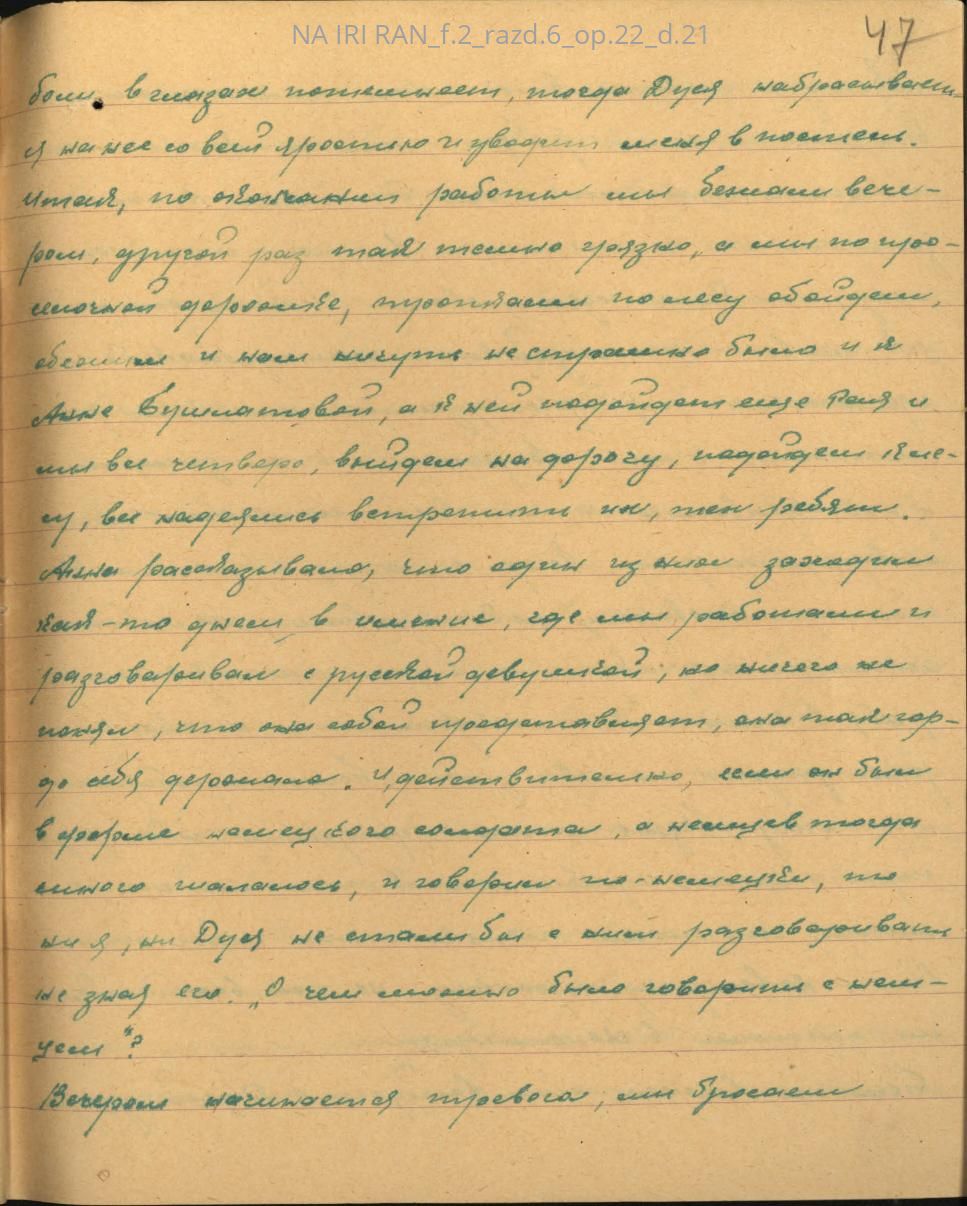 NA IRI RAN_f.2_razd.6_op.22_d.21
47
боли, в глазах потемнеет, тогда Дуся набрасывает-
ся на нее со всей яростью и уводит меня в постель.
Итак, по окончании работы мы бежали вече-
ром, другой раз так темно грязно, а мы по про-
селочной дорожке, тропками по лесу обойдем,
обежим и нам ничуть не страшно было и к
Анне Бушлатовой, а к ней подойдет еще Галя и
мы все четверо, выйдем на дорогу, подойдем к ле-
су, все надеялись встретить их, тех ребят.
Анна рассказывала, что один из них заходил
как-то днем, в имение, где мы работали и
разговаривал с русской девушкой, но ничего не
понял, что она собой представляет, она так гор-
до себя держала. И, действительно, если он был
в форме немецкого солдата, а немцев тогда
много шлялось, и говорил по-немецки, то
ни я, ни Дуся не стали бы с ним разговаривать
не зная его. „О чем можно было говорить с нем-
цем“?
Вечером начинается тревога, мы бросаем